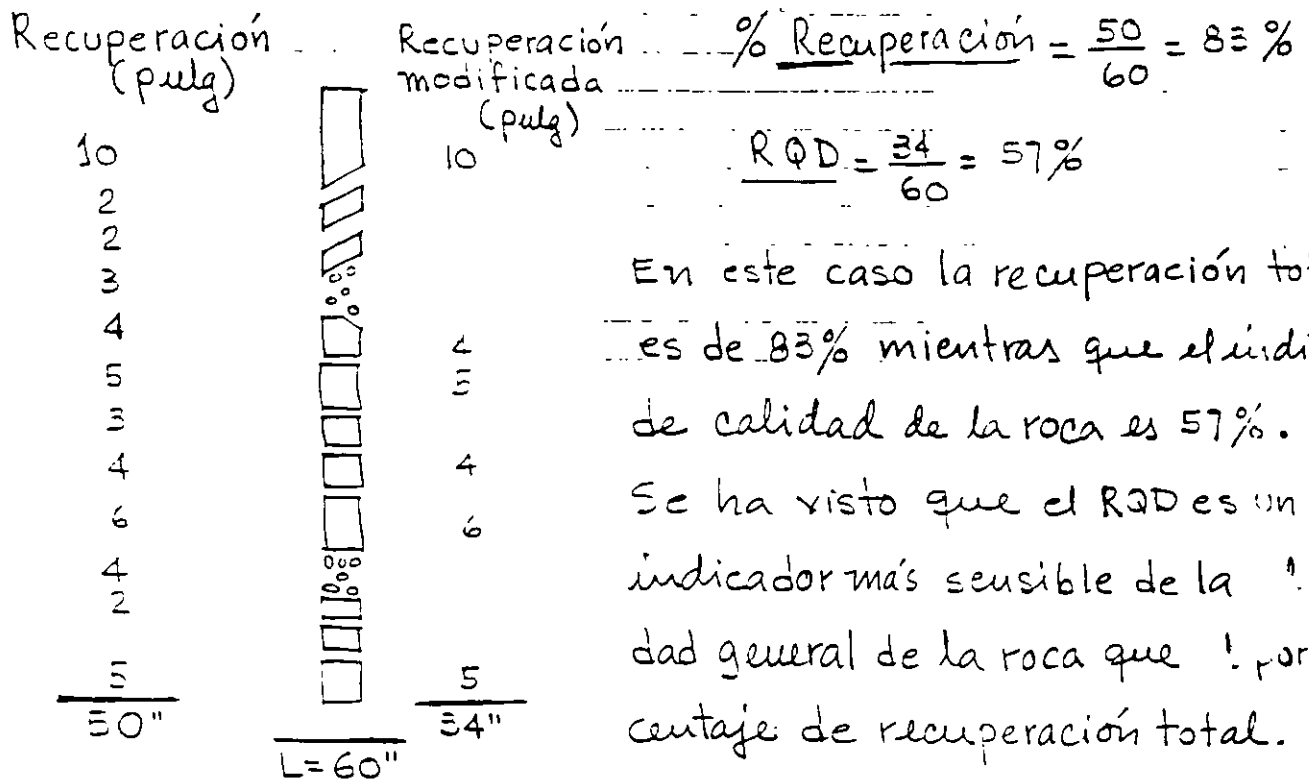 Recuperación
(pulg)
10
2
2
3
4
5
3
4
6
4
2
5
50"
L=60"
Recuperación
modificada
(pulg)
10
4
5
4
6
5
34"
% Recuperación = 50/60 = 83 %
RQD = 34/60 = 57%
En este caso la recuperación
es de 83% mientras que el
de calidad de la roca es 57%.
Se ha visto que el RQD es un
indicador más sensible de la
dad general de la roca que
centaje de recuperación total.